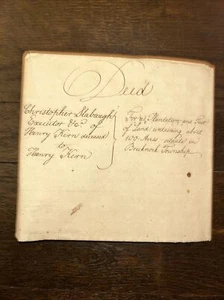 Deed
Christopher Slabaugh
Executor &c. of
Henry Kern deceased
to
Henry Kern
For Plantation and Tract
of Land containing about
100 Acres situate in
Brecknock Township